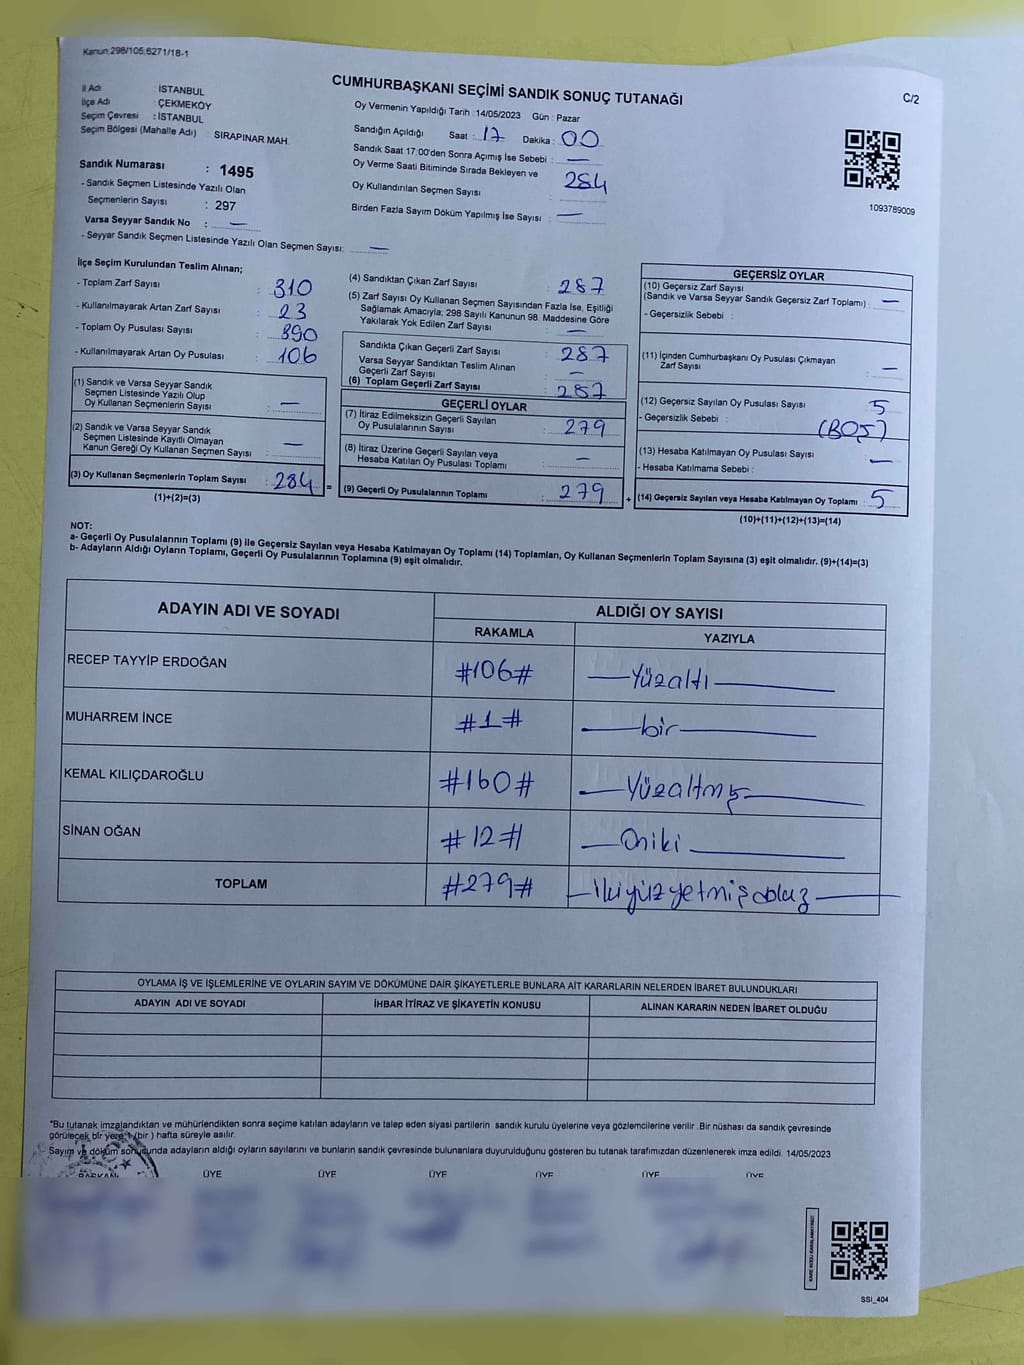 Kanun:298/105,6271/18-1
CUMHURBAŞKANI SEÇİMİ SANDIK SONUÇ TUTANAĞI
C/2
İl Adı : İSTANBUL
İlçe Adı : ÇEKMEKÖY
Seçim Çevresi : İSTANBUL
Seçim Bölgesi (Mahalle Adı) : SIRAPINAR MAH.
Oy Vermenin Yapıldığı Tarih : 14/05/2023 Gün : Pazar
Sandığın Açıldığı Saat : 17 Dakika : 00
Sandık Saat 17:00'den Sonra Açımış İse Sebebi : —
Oy Verme Saati Bitiminde Sırada Bekleyen ve
Oy Kullandırılan Seçmen Sayısı : 284
Birden Fazla Sayım Döküm Yapılmış İse Sayısı : —
1093789009
Sandık Numarası : 1495
- Sandık Seçmen Listesinde Yazılı Olan
Seçmenlerin Sayısı : 297
Varsa Seyyar Sandık No : —
- Seyyar Sandık Seçmen Listesinde Yazılı Olan Seçmen Sayısı: —
İlçe Seçim Kurulundan Teslim Alınan;
- Toplam Zarf Sayısı : 310
- Kullanılmayarak Artan Zarf Sayısı : 23
- Toplam Oy Pusulası Sayısı : 390
- Kullanılmayarak Artan Oy Pusulası : 106
(1) Sandık ve Varsa Seyyar Sandık
Seçmen Listesinde Yazılı Olup
Oy Kullanan Seçmenlerin Sayısı : —
(2) Sandık ve Varsa Seyyar Sandık
Seçmen Listesinde Kayıtlı Olmayan
Kanun Gereği Oy Kullanan Seçmen Sayısı : —
(3) Oy Kullanan Seçmenlerin Toplam Sayısı : 284 =
(1)+(2)=(3)
(4) Sandıktan Çıkan Zarf Sayısı : 287
(5) Zarf Sayısı Oy Kullanan Seçmen Sayısından Fazla İse, Eşitliği
Sağlamak Amacıyla; 298 Sayılı Kanunun 98. Maddesine Göre
Yakılarak Yok Edilen Zarf Sayısı : —
Sandıkta Çıkan Geçerli Zarf Sayısı : 287
Varsa Seyyar Sandıktan Teslim Alınan
Geçerli Zarf Sayısı : —
(6) Toplam Geçerli Zarf Sayısı : 287
GEÇERLİ OYLAR
(7) İtiraz Edilmeksizin Geçerli Sayılan
Oy Pusulalarının Sayısı : 279
(8) İtiraz Üzerine Geçerli Sayılan veya
Hesaba Katılan Oy Pusulası Toplamı : —
(9) Geçerli Oy Pusulalarının Toplamı : 279 +
GEÇERSİZ OYLAR
(10) Geçersiz Zarf Sayısı
(Sandık ve Varsa Seyyar Sandık Geçersiz Zarf Toplamı) : —
- Geçersizlik Sebebi :
(11) İçinden Cumhurbaşkanı Oy Pusulası Çıkmayan
Zarf Sayısı : —
(12) Geçersiz Sayılan Oy Pusulası Sayısı : 5
- Geçersizlik Sebebi : (BOŞ)
(13) Hesaba Katılmayan Oy Pusulası Sayısı : —
- Hesaba Katılmama Sebebi :
(14) Geçersiz Sayılan veya Hesaba Katılmayan Oy Toplamı : 5
(10)+(11)+(12)+(13)=(14)
NOT:
a- Geçerli Oy Pusulalarının Toplamı (9) ile Geçersiz Sayılan veya Hesaba Katılmayan Oy Toplamı (14) Toplamları, Oy Kullanan Seçmenlerin Toplam Sayısına (3) eşit olmalıdır. (9)+(14)=(3)
b- Adayların Aldığı Oyların Toplamı, Geçerli Oy Pusulalarının Toplamına (9) eşit olmalıdır.
ADAYIN ADI VE SOYADI ALDIĞI OY SAYISI
RAKAMLA YAZIYLA
RECEP TAYYİP ERDOĞAN #106# — Yüzaltı —
MUHARREM İNCE #1# — bir —
KEMAL KILIÇDAROĞLU #160# — Yüzaltmış —
SİNAN OĞAN #12# — Oniki —
TOPLAM #279# — ikiyüzyetmişdokuz —
OYLAMA İŞ VE İŞLEMLERİNE VE OYLARIN SAYIM VE DÖKÜMÜNE DAİR ŞİKAYETLERLE BUNLARA AİT KARARLARIN NELERDEN İBARET BULUNDUKLARI
ADAYIN ADI VE SOYADI İHBAR İTİRAZ VE ŞİKAYETİN KONUSU ALINAN KARARIN NEDEN İBARET OLDUĞU
"Bu tutanak imzalandıktan ve mühürlendikten sonra seçime katılan adayların ve talep eden siyasi partilerin sandık kurulu üyelerine veya gözlemcilerine verilir. Bir nüshası da sandık çevresinde
görülecek bir yere 1 (bir ) hafta süreyle asılır.
Sayım ve döküm sonucunda adayların aldığı oyların sayılarını ve bunların sandık çevresinde bulunanlara duyurulduğunu gösteren bu tutanak tarafımızdan düzenlenerek imza edildi. 14/05/2023
BAŞKAN ÜYE ÜYE ÜYE ÜYE ÜYE ÜYE
KARE KODU KARALAMAYINIZ!
SSI_404